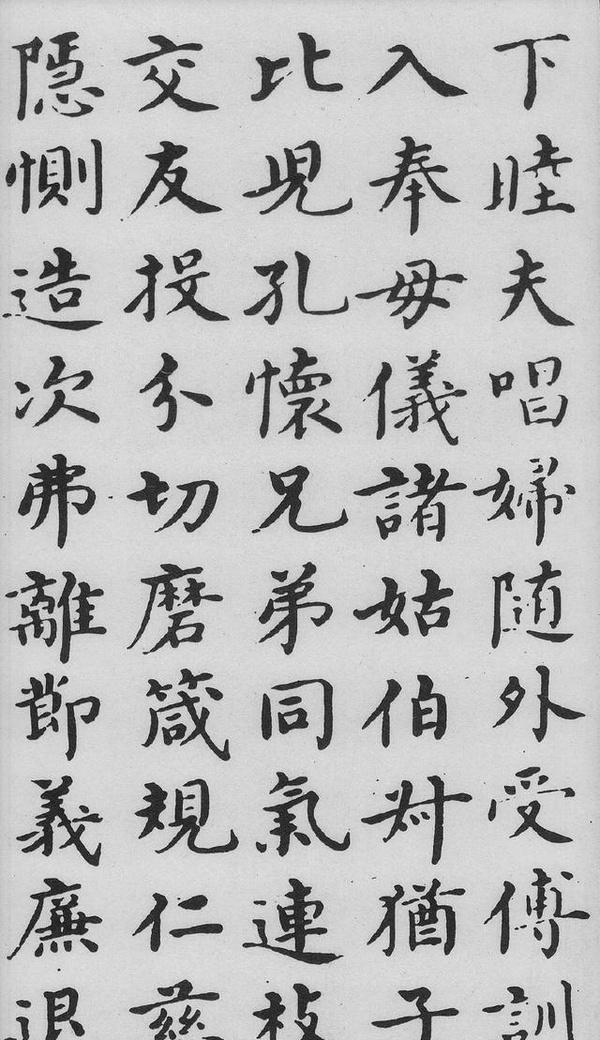 下睦夫唱婦随外受傅訓
入奉母儀諸姑伯叔猶子
比兒孔懷兄弟同氣連枝
交友投分切磨箴規仁慈
隱惻造次弗離節義廉退